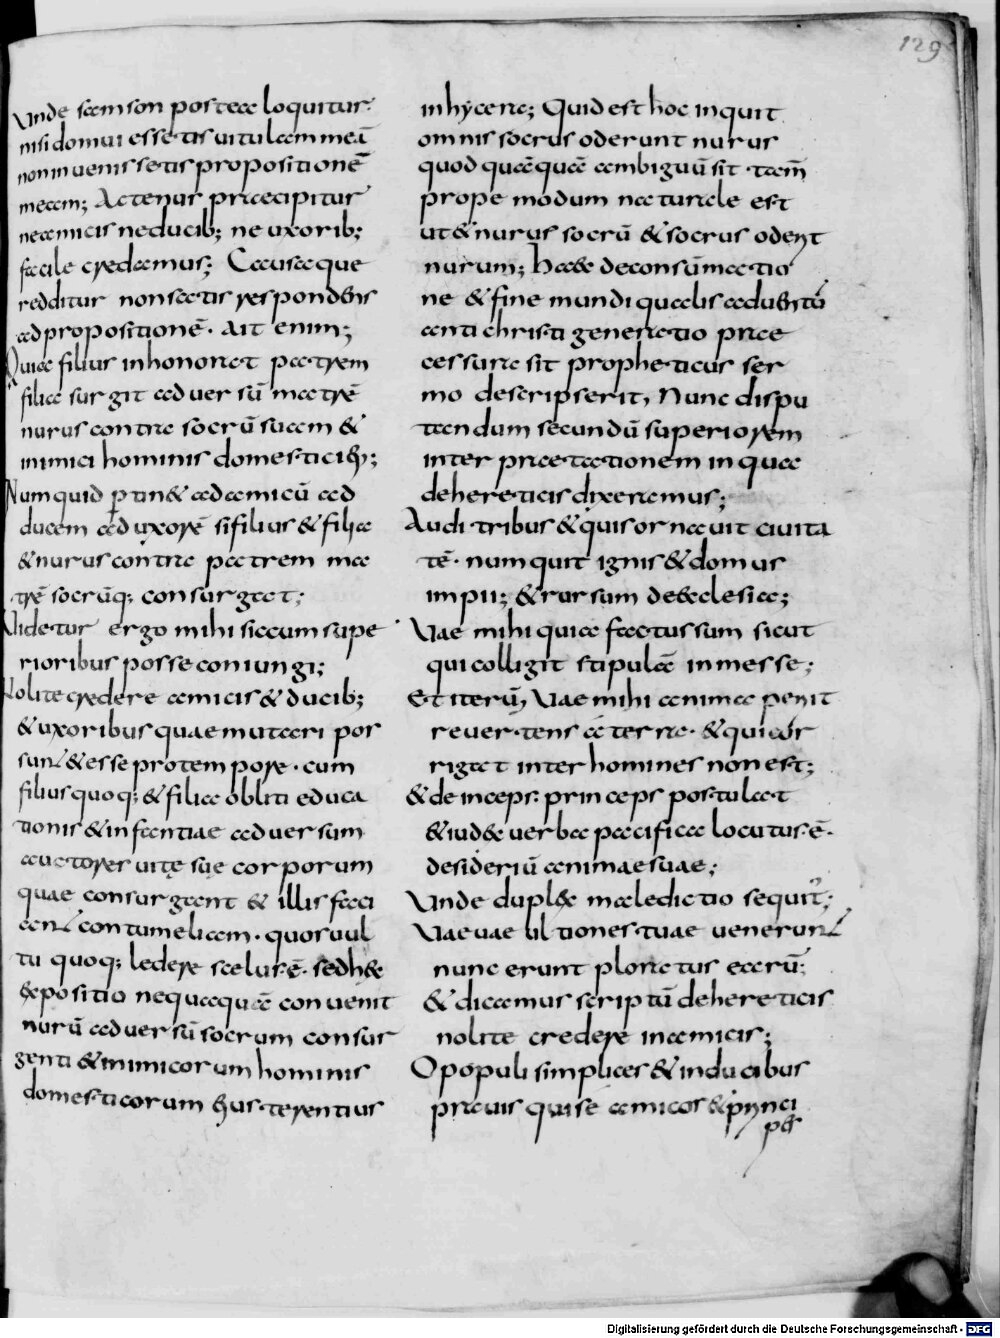 129
Unde samson postea loquitur
nisi domuissetis vitulam meā
non invenissetis propositionē
meam; Actenus praecipitur
ne amicis ne ducib; ne uxorib;
facile credamus; Causaque
redditur non satis respondens
ad propositionē. Ait enim;
Quia filius inhonorat patrem
filia surgit adversū matrē
nurus contra socrū suam &
inimici hominis domestici ei;
Numquid ptin& ad amicū ad
ducem ad uxorē si filius & filia
& nurus contra patrem ma
trē socrūq; consurgat;
Videtur ergo mihi sic cum supe
rioribus posse coniungi;
Nolite credere amicis & ducib;
& uxoribus quae mutari pos
sunt & esse pro tempore. cum
filius quoq; & filia obliti educa
tionis & infantiae adversum
auctores vitę suę corporum
quae consurgant & illis faci
ant contumeliam. quos vul
tu quoq; ledere scelus ē. sed h&
expositio nequaquā convenit
nurū adversū socrum consur
genti & inimicorum hominis
domesticorum eius. terentius
in hycera; Quid est hoc inquit
omnis socrus oderunt nurus
quod quāquā ambiguū sit. tam̄
propemodum naturale est
ut & nurus socrū & socrus oderit
nurum; haec de consūmatio
ne & fine mundi qualis adventū
antichristi generatio prae
cessura sit propheticus ser
mo descripserit, Nunc dispu
tandum secundū superiorem
interpraetationem in qua
de hereticis dixeramus;
Audi tribus & quis ornavit civita
tē. numquit ignis & domus
impii; & rursum de ecclesia;
Vae mihi quia factus sum sicut
qui colligit stipulā in messe;
Et iterū, Vae mihi anima perit
revertens a terra. & qui cor
rigat inter homines non est;
& deinceps. princeps postulat
& iudex verba pacifica locutus ē.
desideriū animae suae;
Unde duplex maledictio sequit;
Vae vae ultiones tuae venerunt
nunc erunt ploratus earū;
& dicamus scriptū de hereticis
nolite credere in amicis;
O populi simplices & in ducibus
pravis qui se amicos & princi
pes
Digitalisierung gefördert durch die Deutsche Forschungsgemeinschaft - DFG